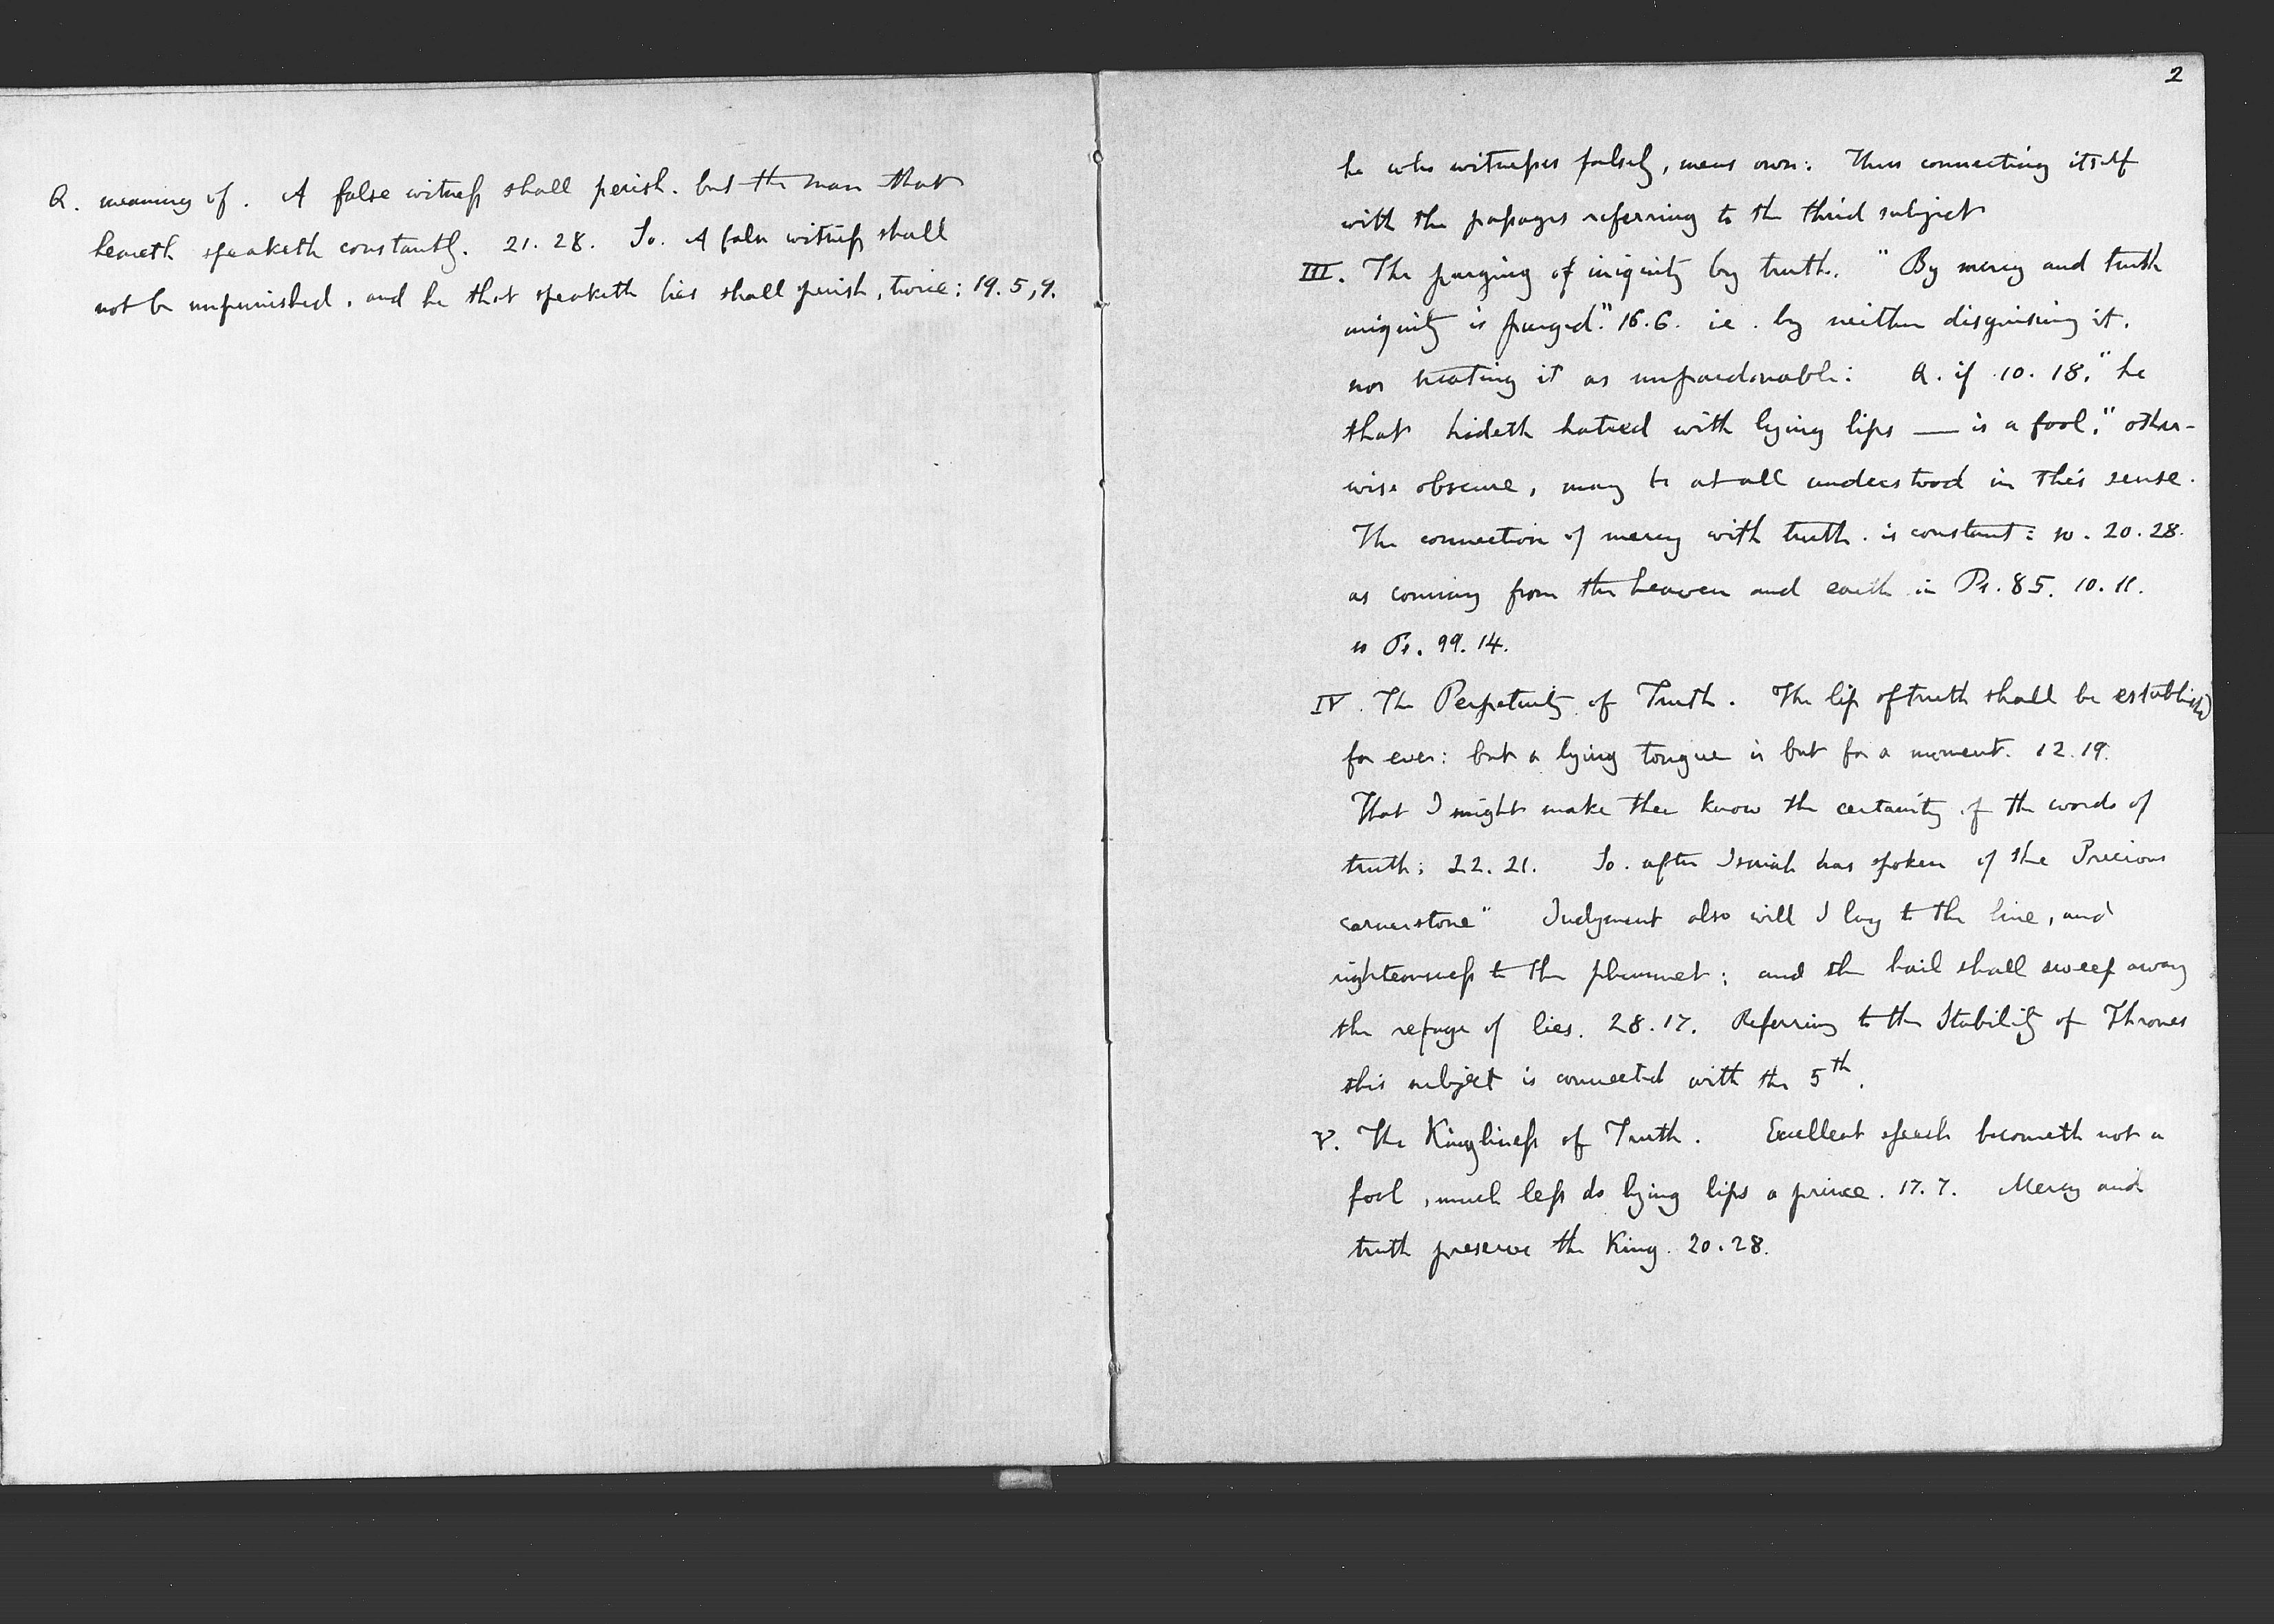 Q. meaning of. A false witness shall perish. but the man that
heareth speaketh constantly. 21. 28. So. A false witness shall
not be unpunished, and he that speaketh lies shall perish, twice: 19. 5, 9.
2
he who witnesses falsely, means own: Thus connecting itself
with the passages referring to the third subject
III. The purging of iniquity by truth. "By mercy and truth
iniquity is purged." 16. 6. ie. by neither disguising it,
nor treating it as unpardonable: Q. if 10. 18, "he
that hideth hatred with lying lips — is a fool," other-
wise obscure, may be at all understood in this sense.
The connection of mercy with truth. is constant: so. 20. 28.
as coming from the heaven and earth in Ps. 85. 10. 11.
so Ps. 99. 14.
IV. The Perpetuity of Truth. The lip of truth shall be established
for ever: but a lying tongue is but for a moment. 12. 19.
That I might make thee know the certainty of the words of
truth; 22. 21. So. after Isaiah has spoken of the Precious
cornerstone" Judgment also will I lay to the line, and
righteousness to the plummet; and the hail shall sweep away
the refuge of lies. 28. 17. Referring to the Stability of Thrones
this subject is connected with the 5th.
V. The Kingliness of Truth. Excellent speech becometh not a
fool, much less do lying lips a prince. 17. 7. Mercy and
truth preserve the King. 20. 28.